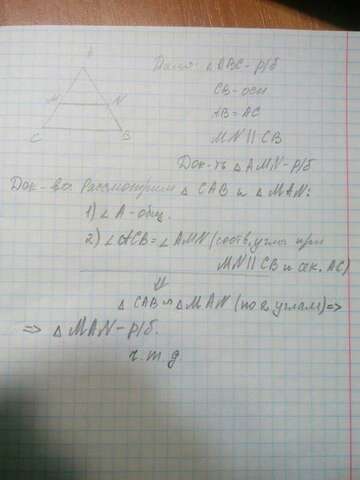 A
M N
C B
Дано: △ABC-р/б
CB-осн
AB=AC
MN||CB
Док-ть △AMN-р/б
Док-во: Рассмотрим △CAB и △MAN:
1) ∠A-общ.
2) ∠ACB=∠AMN (соотв. углы при
MN||CB и сек. AC)
⇓
△CAB∽△MAN (по 2 углам)=>
=> △MAN-р/б.
ч.т.д